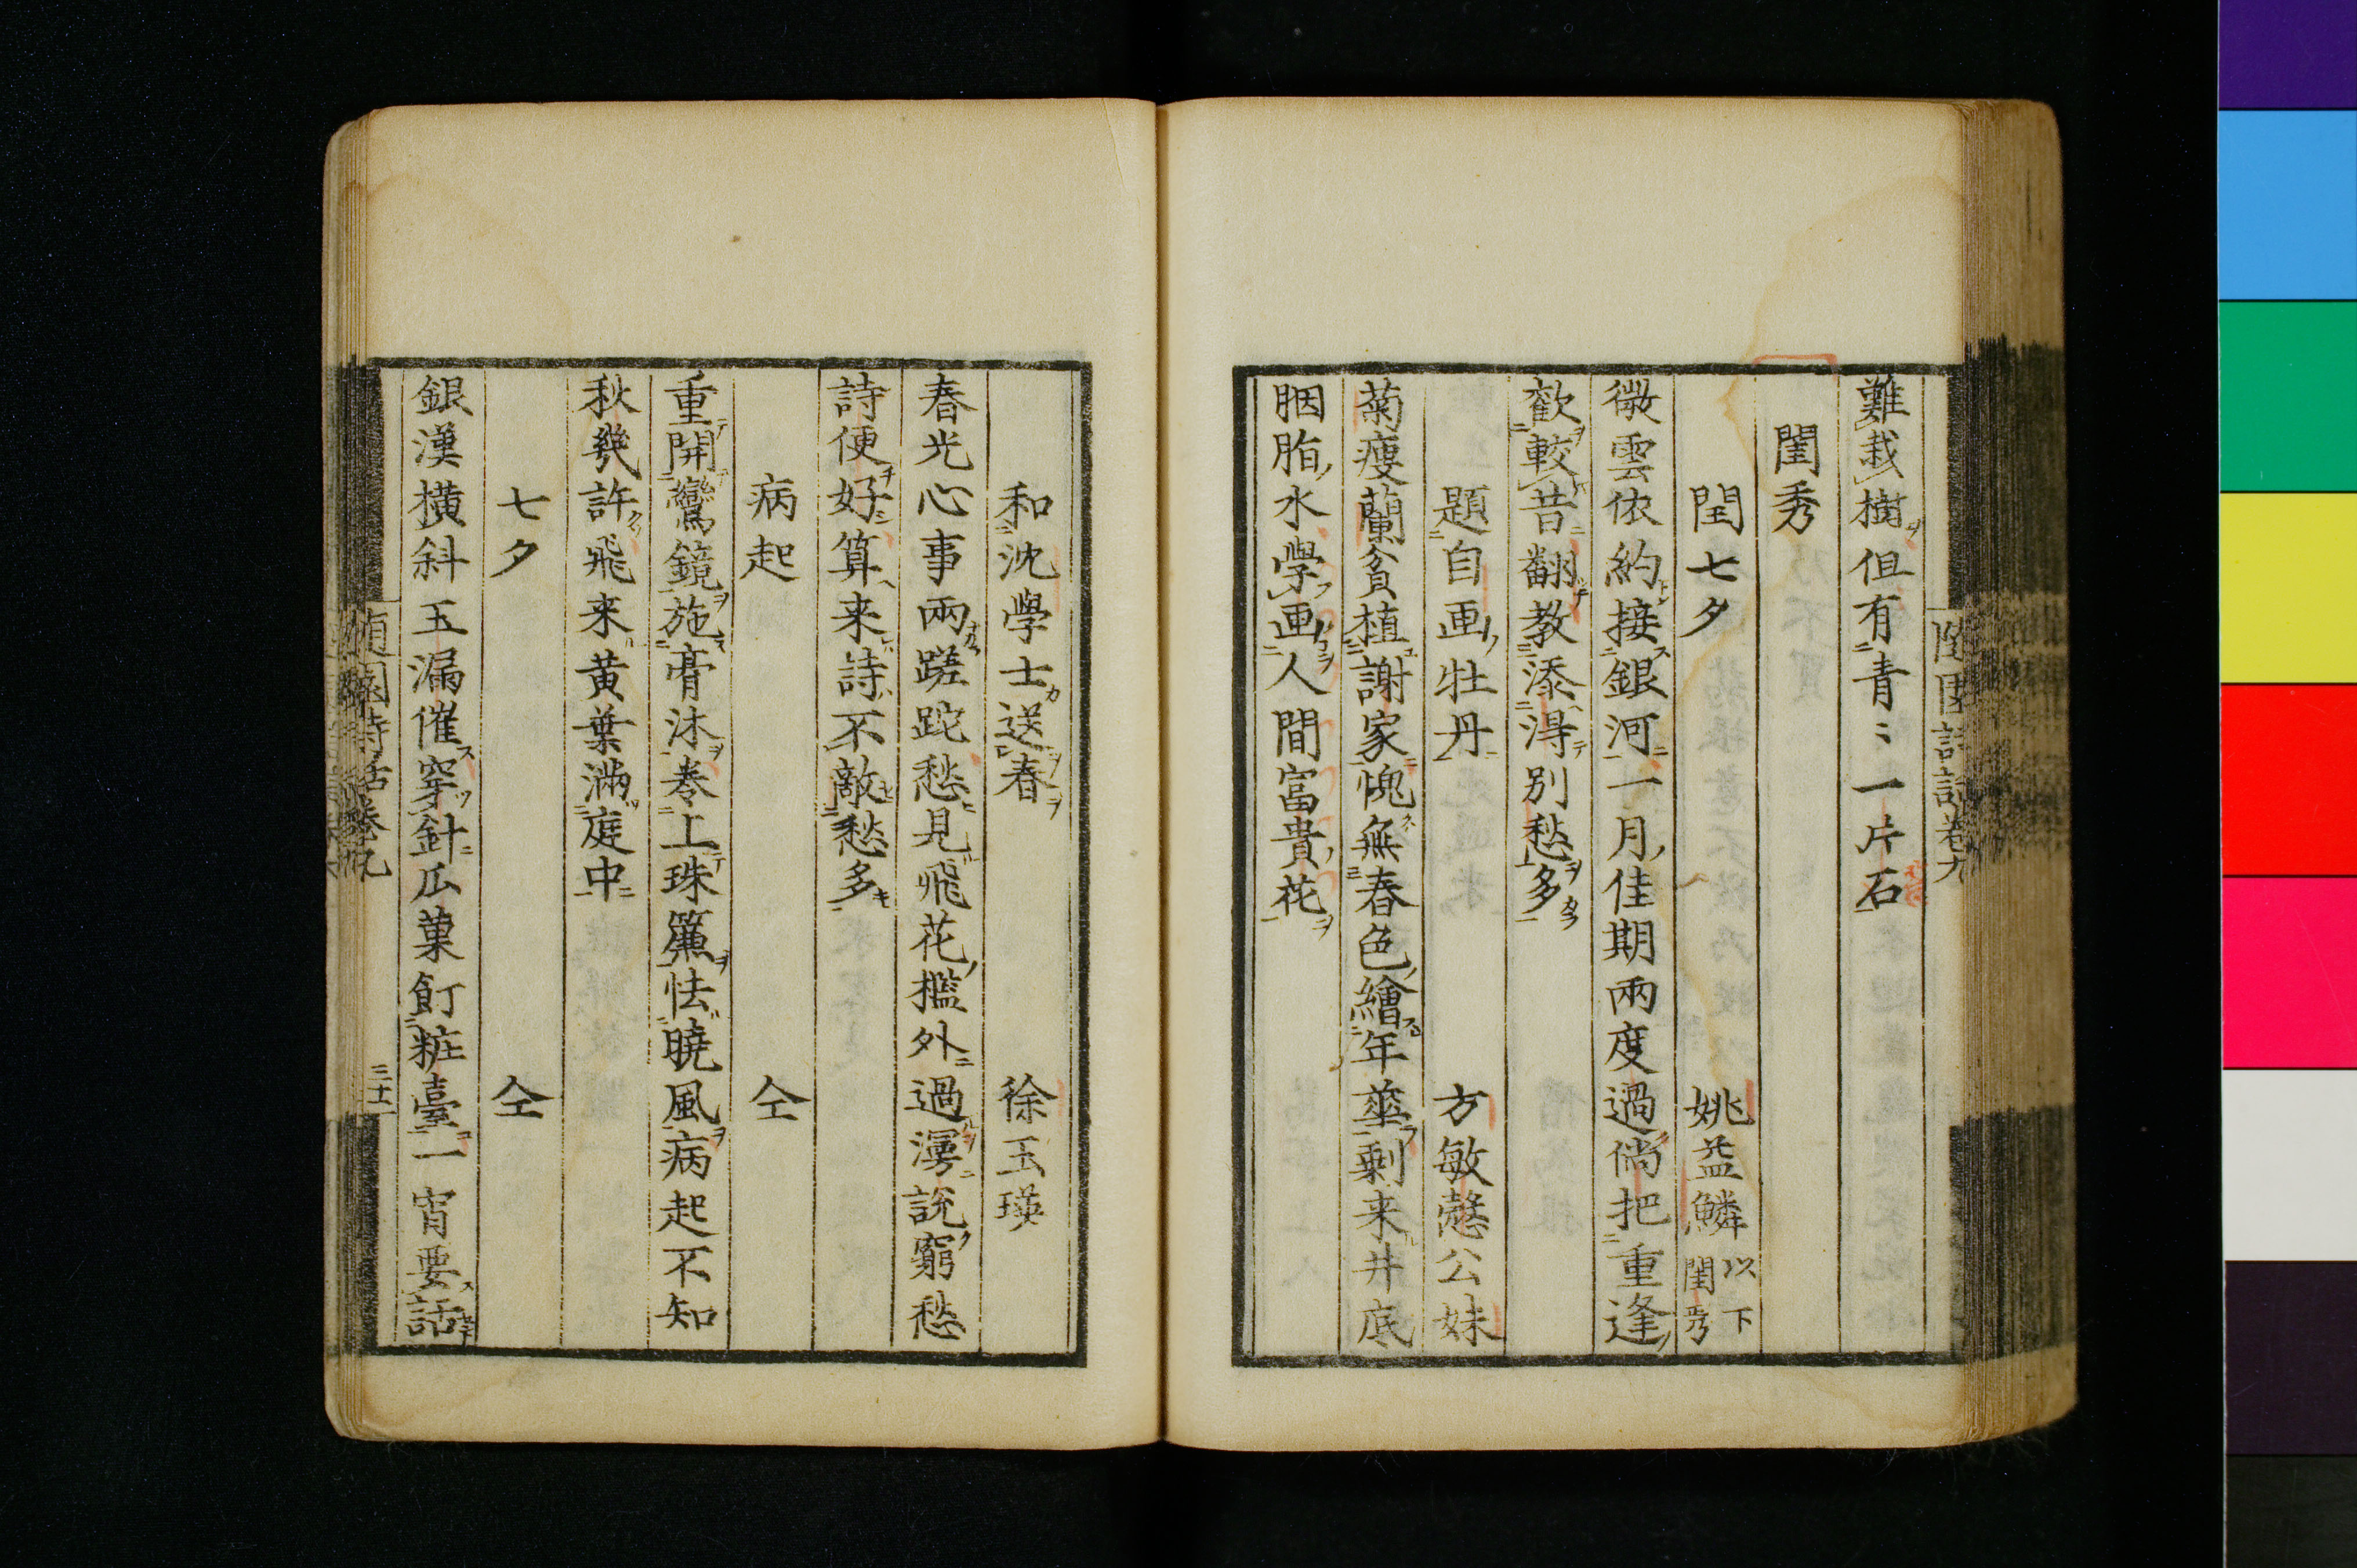 難栽樹但有青〻一片石
閨秀
閏七夕 姚益鱗 以下閨秀
微雲依約接銀河一月佳期兩度過倘把重逢
歡較昔翻教添得別愁多
題自画牡丹 方敏愨公妹
菊瘦蘭貧植謝家愧無春色繪年華剩来井底
胭脂水學画人間富貴花
和沈學士送春 徐玉瑛
春光心事兩蹉跎愁見飛花檻外過漫説窮愁
詩便好算来詩不敵愁多
病起 仝
重開鸞鏡施膏沐巻上珠簾怯曉風病起不知
秋幾許飛来黄葉滿庭中
七夕 仝
銀漢横斜玉漏催穿針瓜菓飣粧臺一宵要話